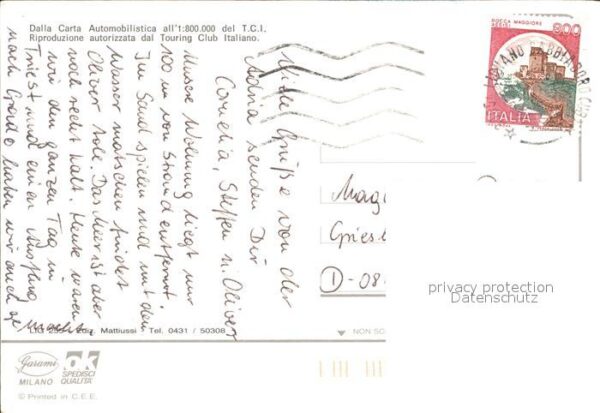 Dalla Carta Automobilistica all'1:800.000 del T.C.I.
Riproduzione autorizzata dal Touring Club Italiano.
Viele Grüße von der
Adria senden Dir
Cornelia, Steffen u. Oliver
Unsere Wohnung liegt nur
100 m von Strand entfernt.
Im Sand spielen und mit dem
Wasser matschen findet
Oliver tole. Das Meer ist aber
noch recht kalt. Heute waren
wir den ganzen Tag in
Triest und einen Ausflug
nach Grado haben wir auch ge
macht.
Mag
Gries
D-08
ROCCA MAGGIORE
ASSISI
800
ITALIA
privacy protection
Datenschutz
Mattiussi - Tel. 0431 / 50308
NON SC
Garami
MILANO
ok
SPEDISCI
QUALITÀ
© Printed in C.E.E.